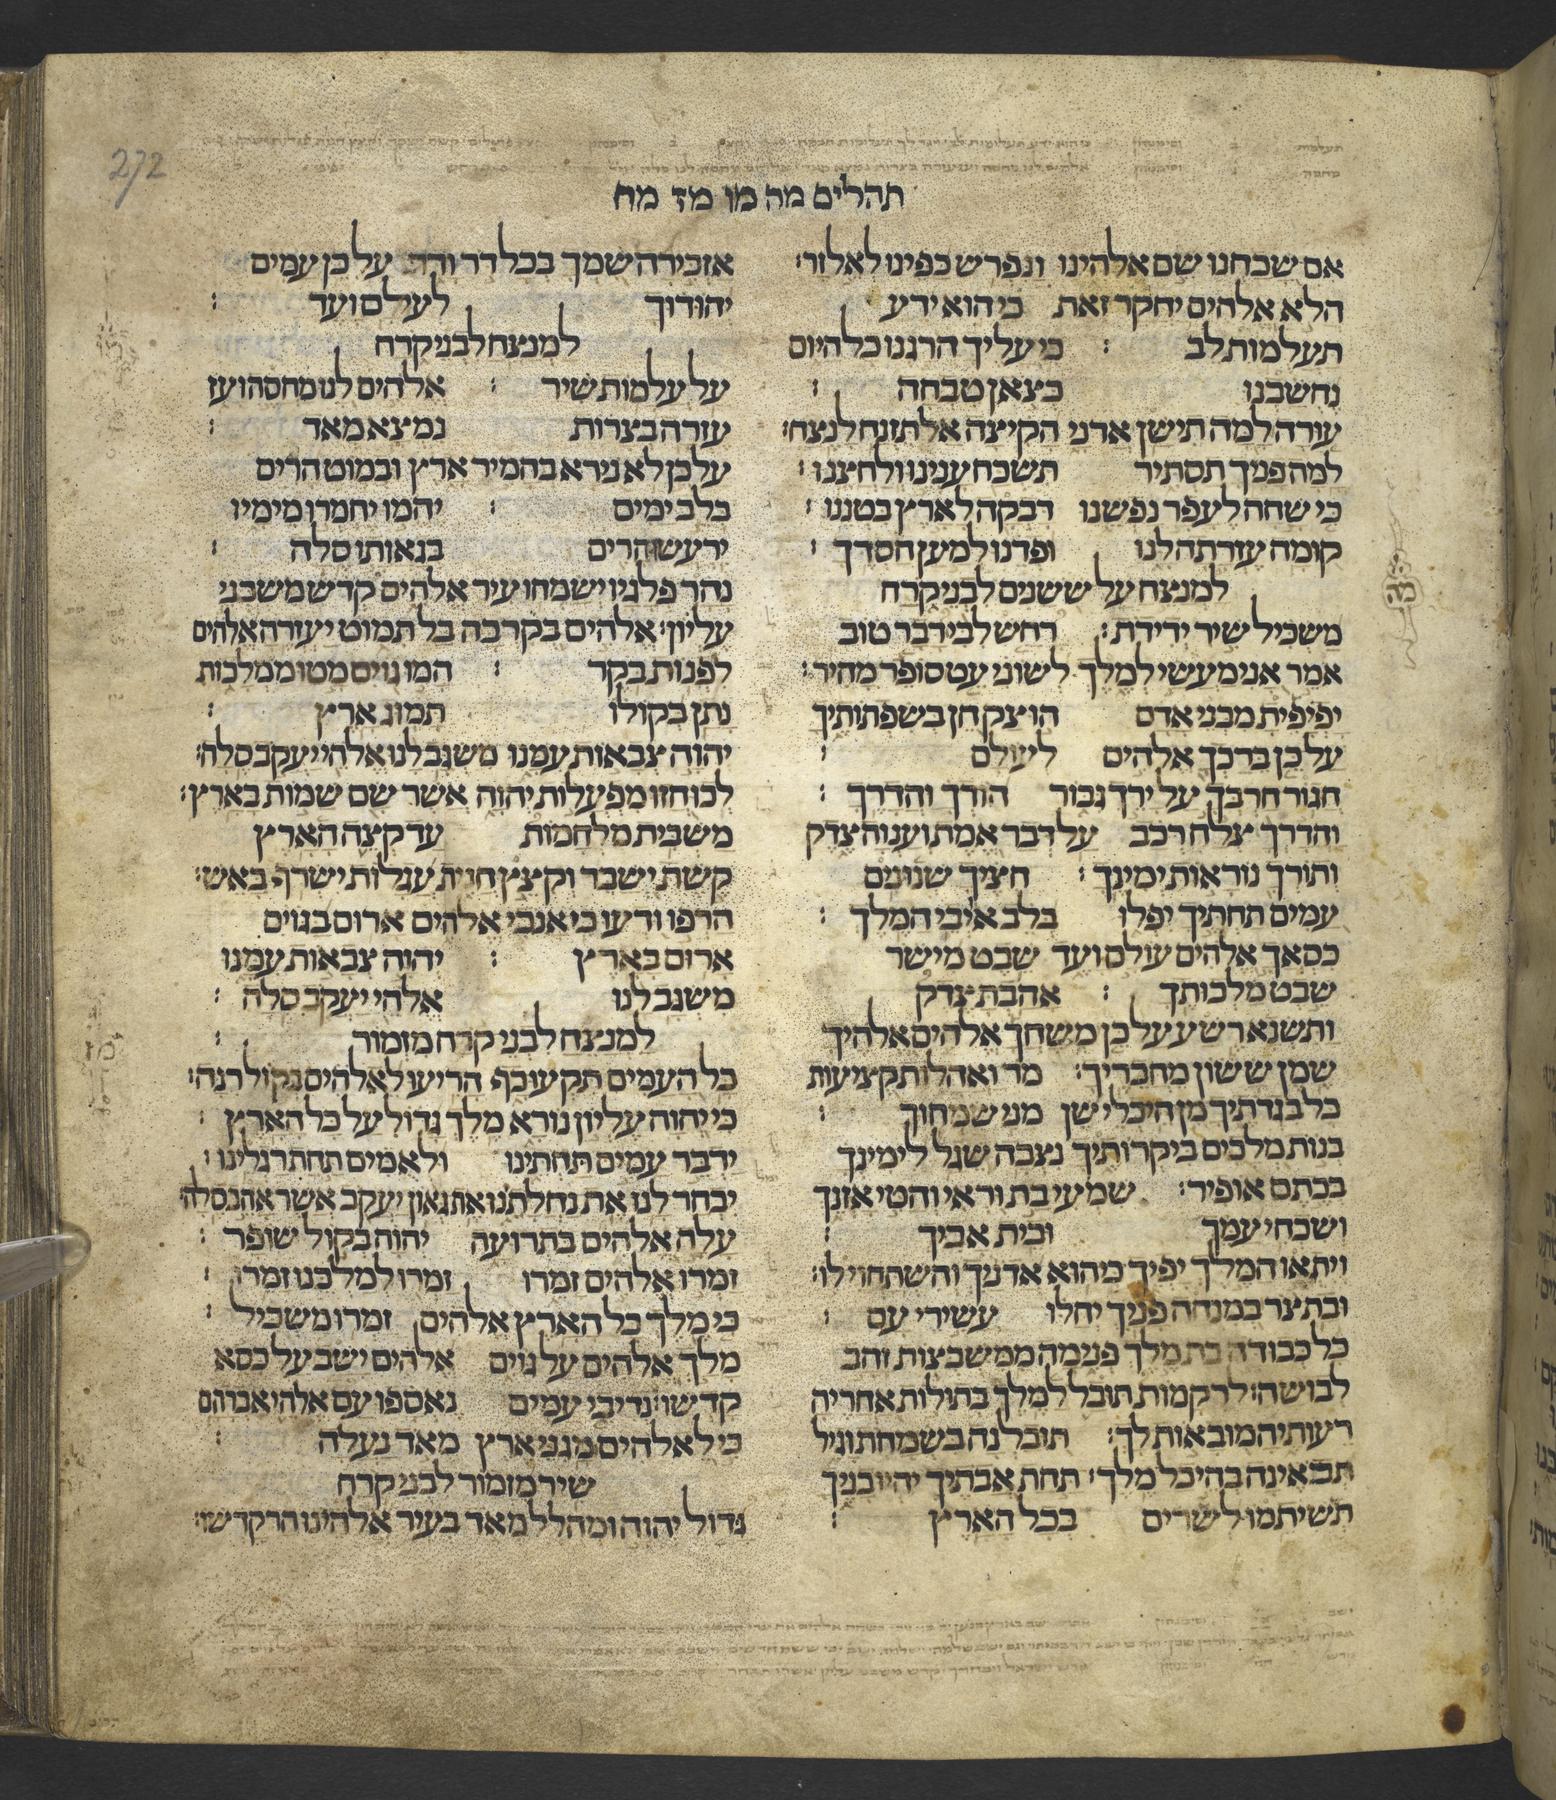 272
תהלים מה מו מז מח
אם שכחנו שם אלהינו ונפרש כפינו לאל זר׃
הלא אלהים יחקר זאת כי הוא ידע
תעלמות לב ׃ כי עליך הרגנו כל היום
נחשבנו כצאן טבחה ׃
עורה למה תישן אדני הקיצה אל תזנח לנצח׃
למה פניך תסתיר תשכח ענינו ולחצנו ׃
כי שחה לעפר נפשנו דבקה לארץ בטננו ׃
קומה עזרתה לנו ופדנו למען חסדך ׃
למנצח על ששנים לבני קרח
משכיל שיר ידידת׃ רחש לבי דבר טוב
אמר אני מעשי למלך לשוני עט סופר מהיר׃
יפיפית מבני אדם הוצק חן בשפתותיך
על כן ברכך אלהים לעולם ׃
חגור חרבך על ירך גבור הודך והדרך ׃
והדרך צלח רכב על דבר אמת וענוה צדק
ותורך נוראות ימינך ׃ חציך שנונים
עמים תחתיך יפלו בלב איבי המלך ׃
כסאך אלהים עולם ועד שבט מישר
שבט מלכותך ׃ אהבת צדק
ותשנא רשע על כן משחך אלהים אלהיך
שמן ששון מחבריך׃ מר ואהלות קציעות
כל בגדתיך מן היכלי שן מני שמחוך ׃
בנות מלכים ביקרותיך נצבה שגל לימינך
בכתם אופיר׃ שמעי בת וראי והטי אזנך
ושכחי עמך ובית אביך ׃
ויתאו המלך יפיך כי הוא אדניך והשתחוי לו׃
ובת צר במנחה פניך יחלו עשירי עם ׃
כל כבודה בת מלך פנימה ממשבצות זהב
לבושה׃ לרקמות תובל למלך בתולות אחריה
רעותיה מובאות לך׃ תובלנה בשמחת וגיל
תבאינה בהיכל מלך׃ תחת אבתיך יהיו בניך
תשיתמו לשרים בכל הארץ ׃
אזכירה שמך בכל דר ודר על כן עמים
יהודוך לעולם ועד ׃
למנצח לבני קרח
על עלמות שיר ׃ אלהים לנו מחסה ועז
עזרה בצרות נמצא מאד ׃
על כן לא נירא בהמיר ארץ ובמוט הרים
בלב ימים ׃ יהמו יחמרו מימיו
ירעשו הרים בגאותו סלה ׃
נהר פלגיו ישמחו עיר אלהים קדש משכני
עליון׃ אלהים בקרבה בל תמוט יעזרה אלהים
לפנות בקר ׃ המו גוים מטו ממלכות
נתן בקולו תמוג ארץ ׃
יהוה צבאות עמנו משגב לנו אלהי יעקב סלה׃
לכו חזו מפעלות יהוה אשר שם שמות בארץ׃
משבית מלחמות עד קצה הארץ
קשת ישבר וקצץ חנית עגלות ישרף באש׃
הרפו ודעו כי אנכי אלהים ארום בגוים
ארום בארץ ׃ יהוה צבאות עמנו
משגב לנו אלהי יעקב סלה ׃
למנצח לבני קרח מזמור ׃
כל העמים תקעו כף הריעו לאלהים בקול רנה׃
כי יהוה עליון נורא מלך גדול על כל הארץ ׃
ידבר עמים תחתינו ולאמים תחת רגלינו ׃
יבחר לנו את נחלתנו את גאון יעקב אשר אהב סלה׃
עלה אלהים בתרועה יהוה בקול שופר ׃
זמרו אלהים זמרו זמרו למלכנו זמרו ׃
כי מלך כל הארץ אלהים זמרו משכיל ׃
מלך אלהים על גוים אלהים ישב על כסא
קדשו׃ נדיבי עמים נאספו עם אלהי אברהם
כי לאלהים מגני ארץ מאד נעלה ׃
שיר מזמור לבני קרח
גדול יהוה ומהלל מאד בעיר אלהינו הר קדשו׃
מה
מז